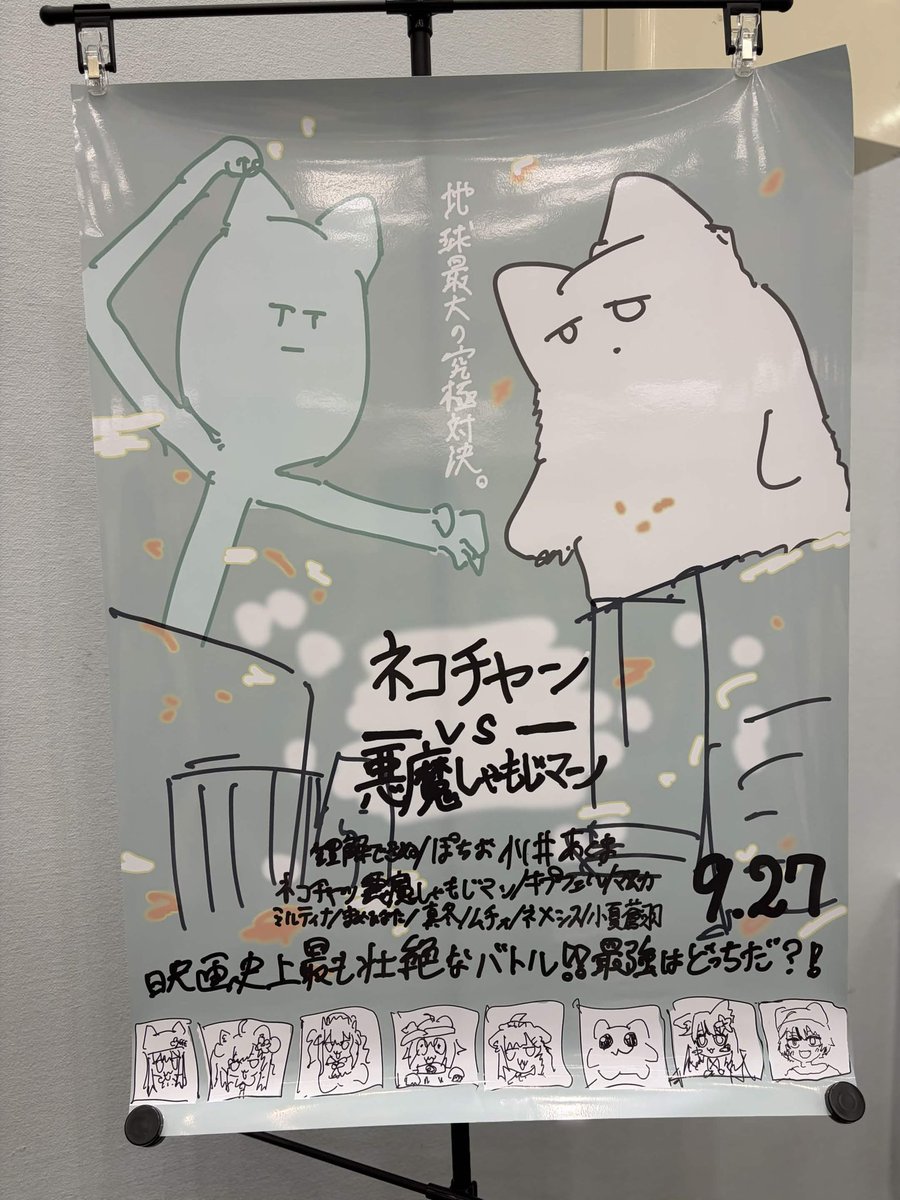 地球最大の究極対決。
ネコチャーン
ーvsー
悪魔しゃもじマーン
理解できぬ/ぽちお/川井
ネコチャッ/悪魔しゃもじマン/キプフェル/マヌカ
ミルティナ/真冬/ムチィ/ネメシス/小夏蒼羽
9.27
映画史上最も壮絶なバトル!?最強はどっちだ?!